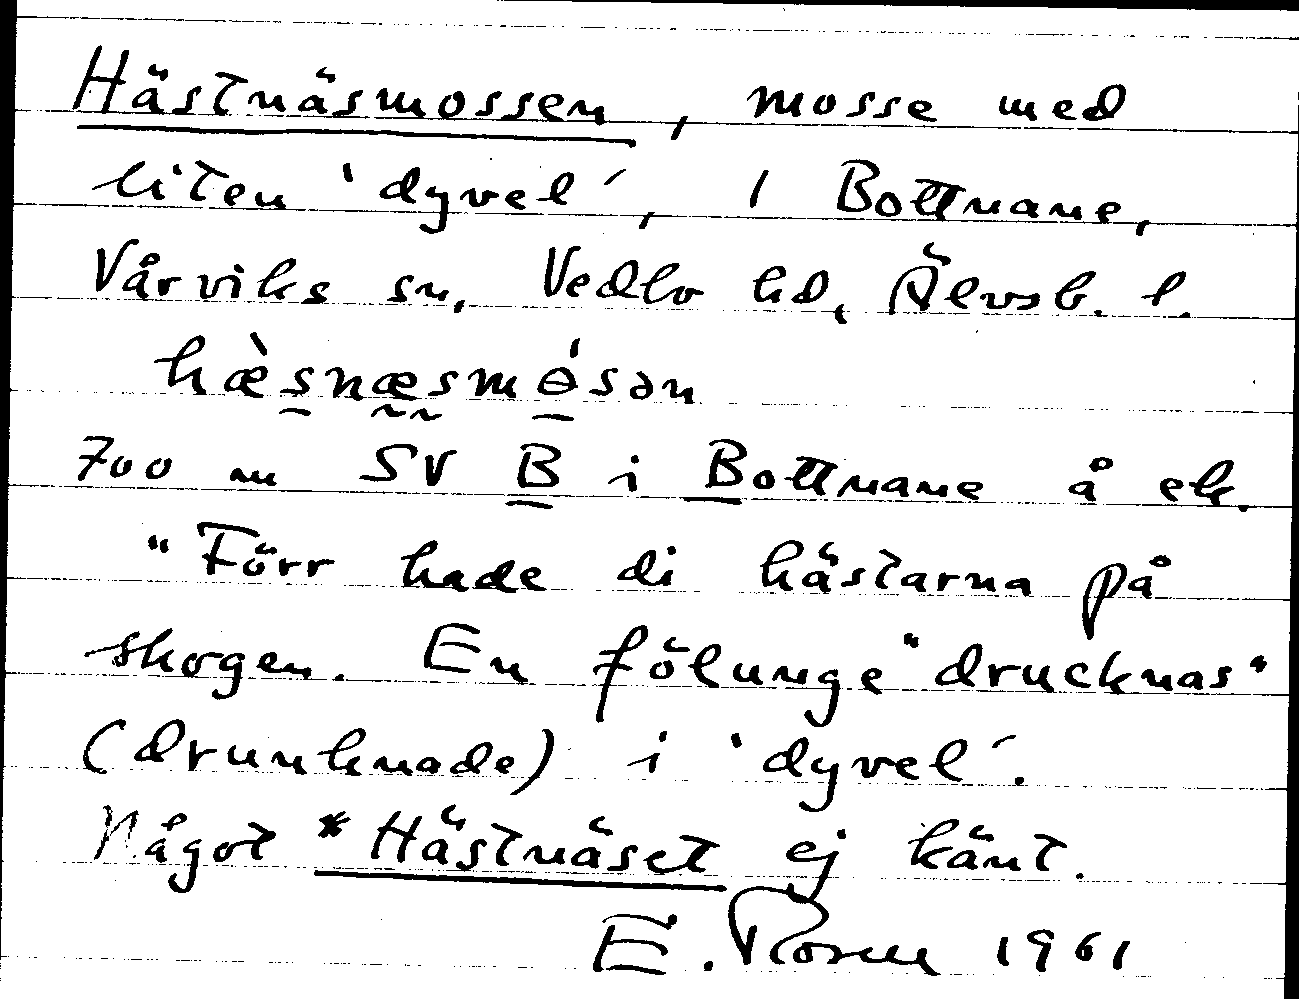 Hästnäsmossen, mosse med
liten 'dyvel', i Bottnane,
Vårviks sn, Vedbo hd, Älvsb. l.
hæ̀snæsmɵ́sən
700 m SV B i Bottnane å ek.
"Förr hade di hästarna på
skogen. En fölunge "drucknas"
(drunknade) i 'dyvel'.
Något *Hästnäset ej känt.
E. Rosell 1961